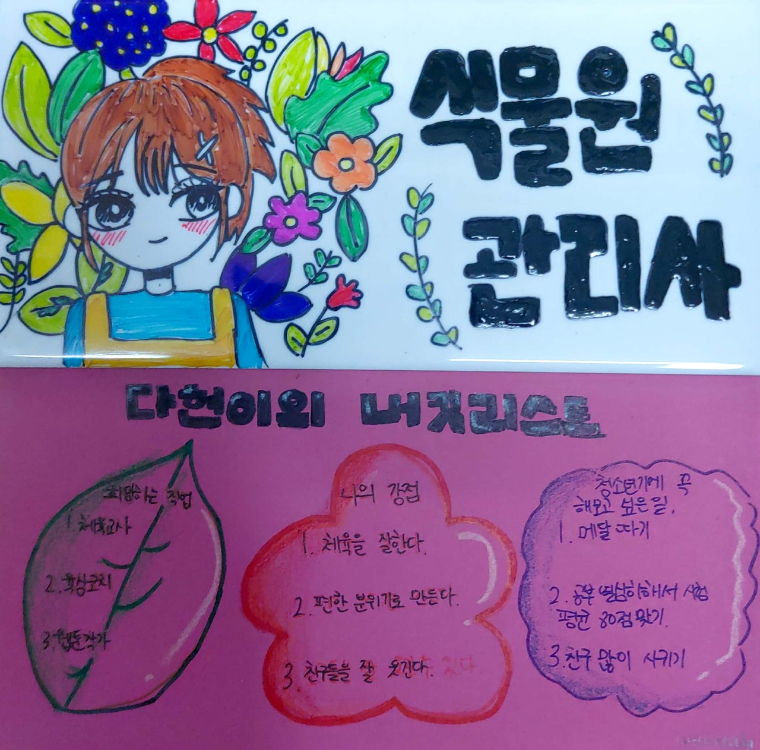 식물원
관리사
다현이의 버킷리스트
희망하는 직업
1. 체육교사
2. 육상코치
3. 웹툰작가
나의 강점
1. 체육을 잘한다.
2. 편한 분위기로 만든다.
3. 친구들을 잘 웃긴다.
청소년기에 꼭
해보고 싶은 일.
1. 메달 따기
2. 공부 열심히해서 시험
평균 80점 맞기.
3. 친구 많이 사귀기